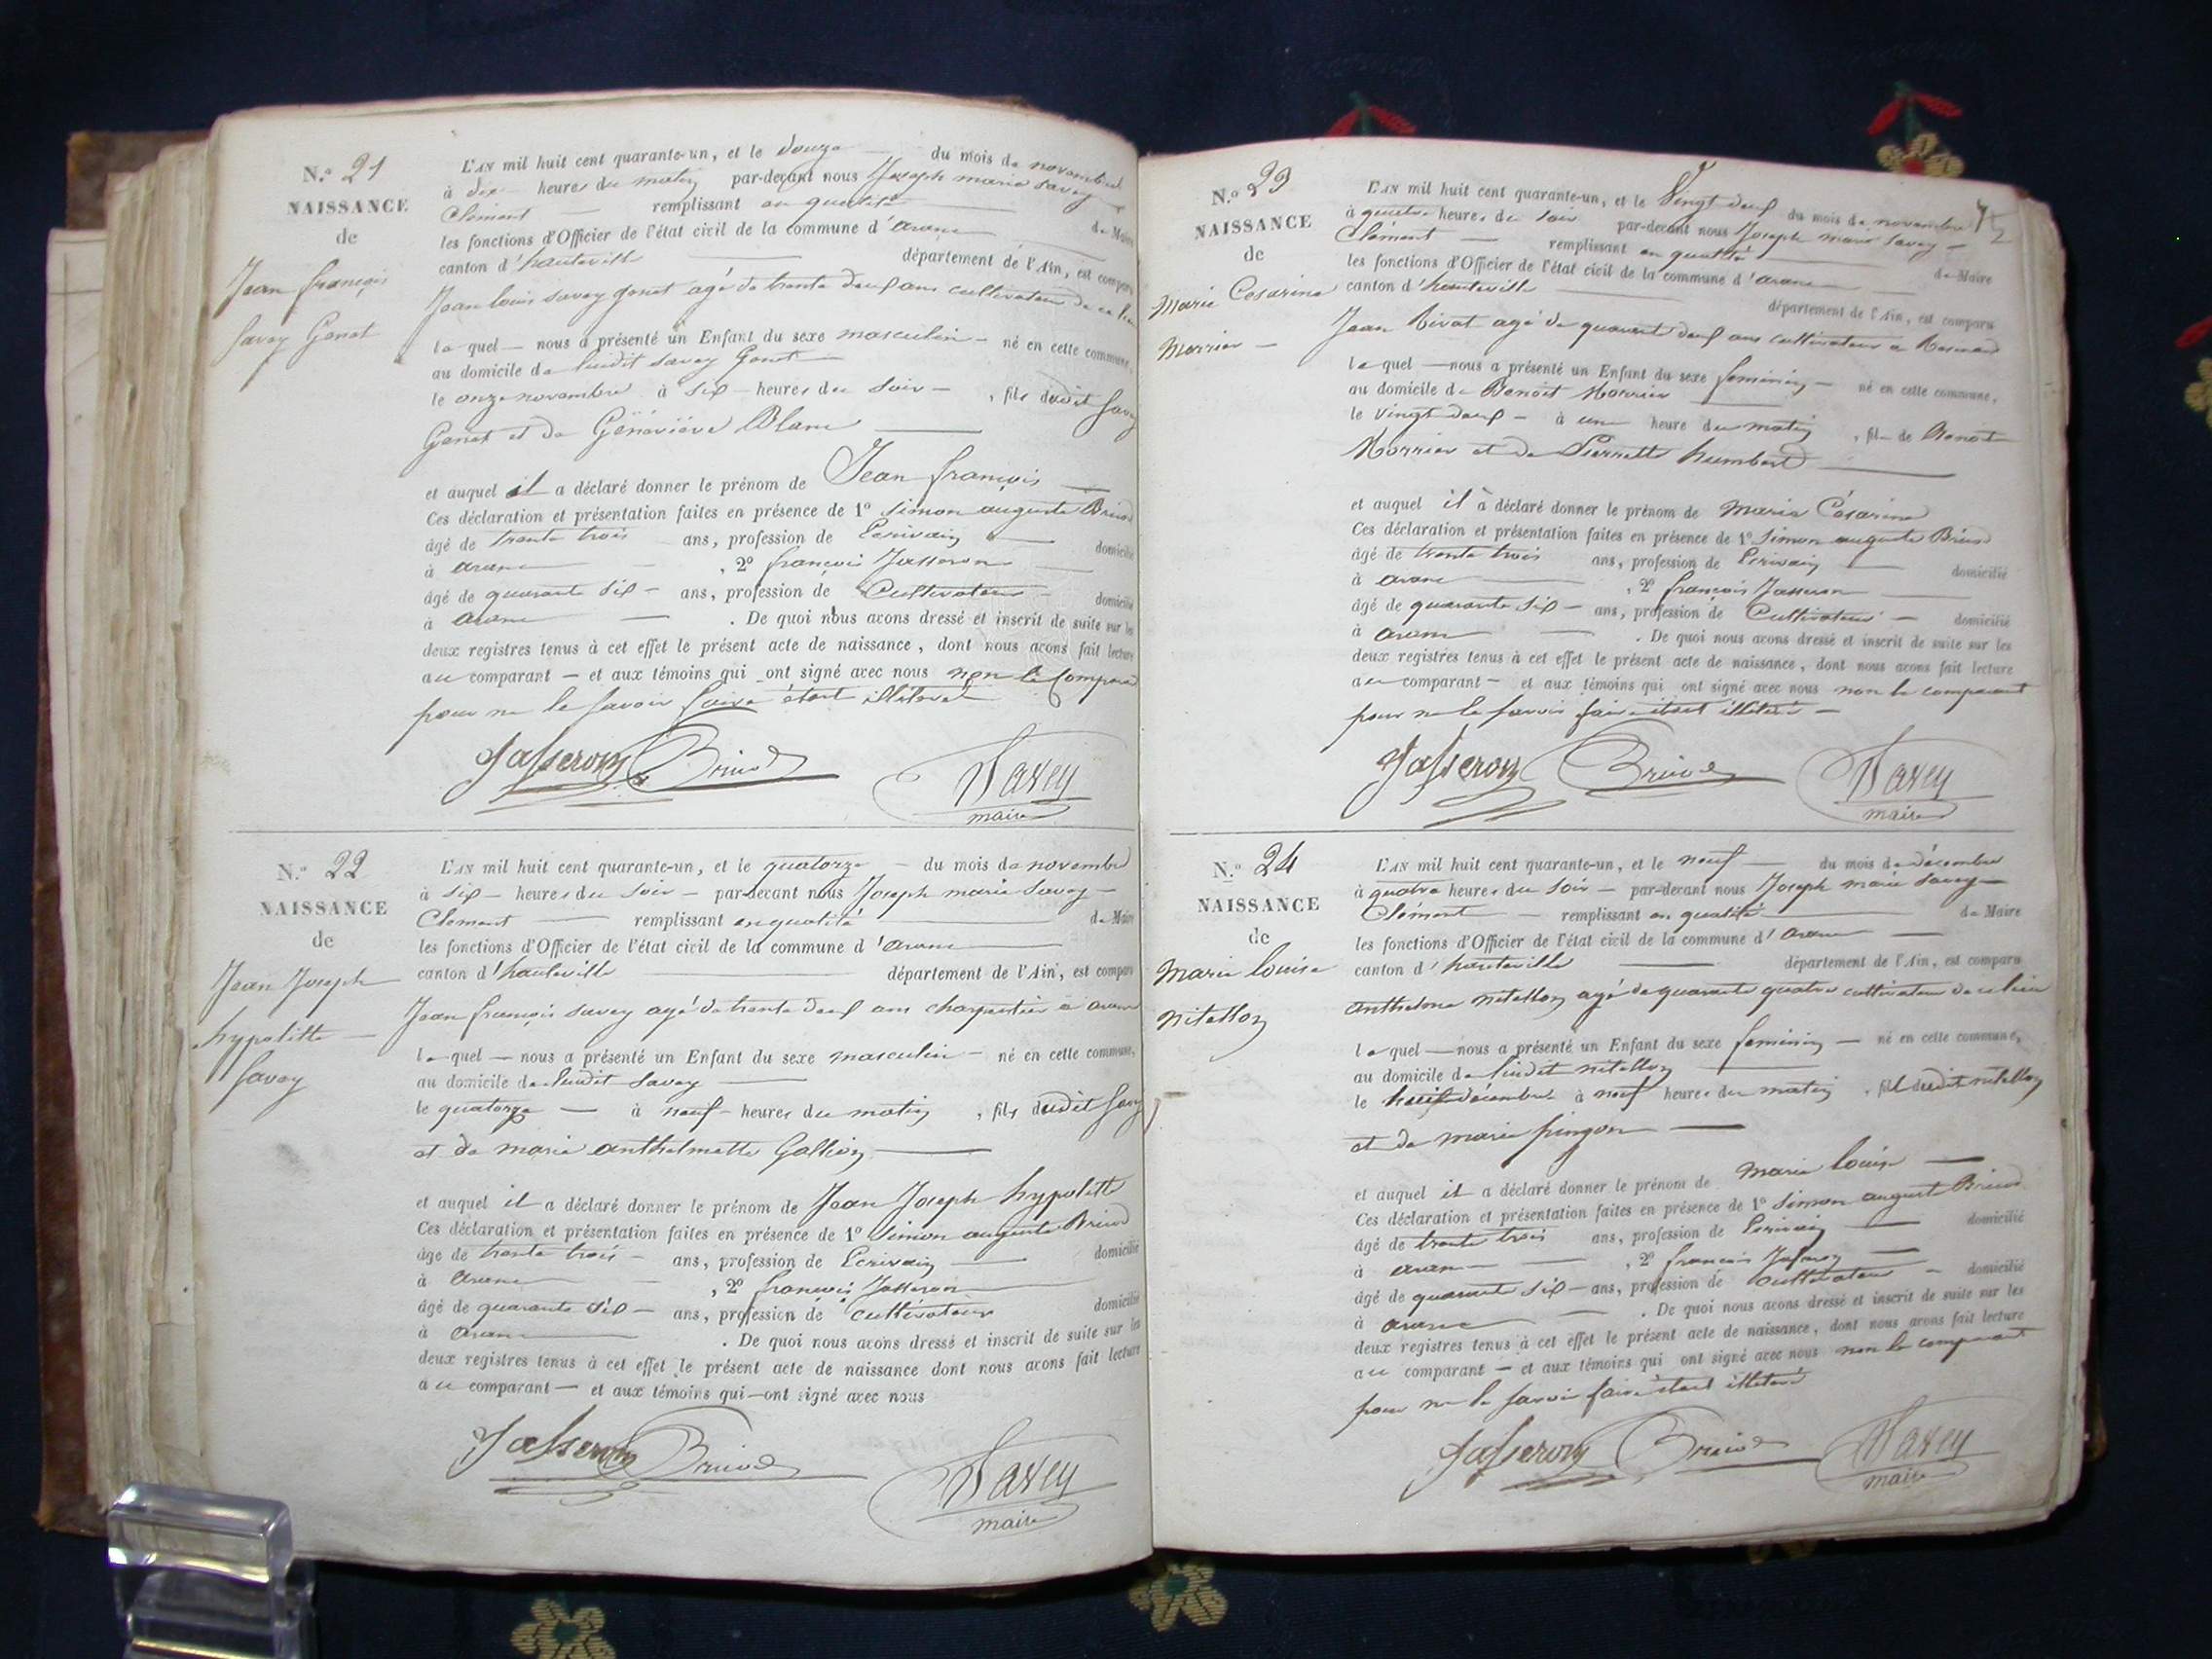 N.º 21
NAISSANCE
de
Jean françois
Savey Genet
L'AN mil huit cent quarante-un, et le douze du mois de novembre
à dix heures du matin par-devant nous Joseph marie Savey
Clément remplissant en qualité de Maire
les fonctions d'Officier de l'état civil de la commune d'arane
canton d'hauteville département de l'Ain, est comparu
Jean louis savey genet agé de trente deux ans cultivateur de ce lieu
lequel nous a présenté un Enfant du sexe masculin né en cette commune,
au domicile de ludit savey Genet
le onze novembre à six heures du soir, fils dudit Savey
Genet et de Géneviève Blanc
et auquel il a déclaré donner le prénom de Jean françois
Ces déclaration et présentation faites en présence de 1º Simon auguste Brivod
âgé de trente trois ans, profession de Ecrivain domicilié
à arane, 2º françois Jasseron
âgé de quarante six ans, profession de Cultivateur domicilié
à arane. De quoi nous avons dressé et inscrit de suite sur les
deux registres tenus à cet effet le présent acte de naissance, dont nous avons fait lecture
au comparant et aux témoins qui ont signé avec nous non le Comparant
pour ne le savoir faire étant illiteré
Jasseron Brivod Savey
maire
N.º 22
NAISSANCE
de
Jean Joseph
hypolitte
Savey
L'AN mil huit cent quarante-un, et le quatorze du mois de novembre
à six heures du soir par-devant nous Joseph marie Savey
Clément remplissant en qualité de Maire
les fonctions d'Officier de l'état civil de la commune d'arane
canton d'hauteville département de l'Ain, est comparu
Jean françois savey agé de trente deux ans charpentier à arane
lequel nous a présenté un Enfant du sexe masculin né en cette commune,
au domicile de ludit Savey
le quatorze à neuf heures du matin, fils dudit Savey
et de marie anthelmette Gallion
et auquel il a déclaré donner le prénom de Jean Joseph hypolitte
Ces déclaration et présentation faites en présence de 1º Simon auguste Brivod
âgé de trente trois ans, profession de Ecrivain domicilié
à arane, 2º françois Jasseron
âgé de quarante six ans, profession de cultivateur domicilié
à arane. De quoi nous avons dressé et inscrit de suite sur les
deux registres tenus à cet effet le présent acte de naissance dont nous avons fait lecture
au comparant et aux témoins qui ont signé avec nous
Jasseron Brivod Savey
maire
N.º 23
NAISSANCE
de
Marie Cesarine
Morrier
L'AN mil huit cent quarante-un, et le Vingt deux du mois de novembre
à quatre heures du soir par-devant nous Joseph marie Savey
Clément remplissant en qualité de Maire
les fonctions d'Officier de l'état civil de la commune d'arane
canton d'hauteville département de l'Ain, est comparu
Jean Rivat agé de quarante deux ans cultivateur a
lequel nous a présenté un Enfant du sexe feminin né en cette commune,
au domicile de Benoit Morrier
le vingt deux à une heure du matin, fil de Benoit
Morrier et de Pierrette humbert
et auquel il à déclaré donner le prénom de Marie Césarine
Ces déclaration et présentation faites en présence de 1º Simon auguste Brivod
âgé de trente trois ans, profession de Ecrivain domicilié
à arane, 2º françois Jasseron
âgé de quarante six ans, profession de Cultivateur domicilié
à arane. De quoi nous avons dressé et inscrit de suite sur les
deux registres tenus à cet effet le présent acte de naissance, dont nous avons fait lecture
au comparant et aux témoins qui ont signé avec nous non le comparant
pour ne le savoir faire étant illiteré
Jasseron Brivod Savey
maire
N.º 24
NAISSANCE
de
Marie louise
nitellon
L'AN mil huit cent quarante-un, et le neuf du mois de décembre
à quatre heures du soir par-devant nous Joseph marie Savey
Clément remplissant en qualité de Maire
les fonctions d'Officier de l'état civil de la commune d'arane
canton d'hauteville département de l'Ain, est comparu
anthelme nitellon agé de quarante quatre cultivateur de ce lieu
lequel nous a présenté un Enfant du sexe feminin né en cette commune,
au domicile de ludit nitellon
le huit décembre à neuf heures du matin, fil dudit nitellon
et de marie pingon
et auquel il a déclaré donner le prénom de Marie louise
Ces déclaration et présentation faites en présence de 1º Simon auguste Brivod
âgé de trente trois ans, profession de Ecrivain domicilié
à arane, 2º françois Jasseron
âgé de quarante six ans, profession de cultivateur domicilié
à arane. De quoi nous avons dressé et inscrit de suite sur les
deux registres tenus à cet effet le présent acte de naissance, dont nous avons fait lecture
au comparant et aux témoins qui ont signé avec nous non le comparant
pour ne le savoir faire étant illiteré
Jasseron Brivod Savey
maire